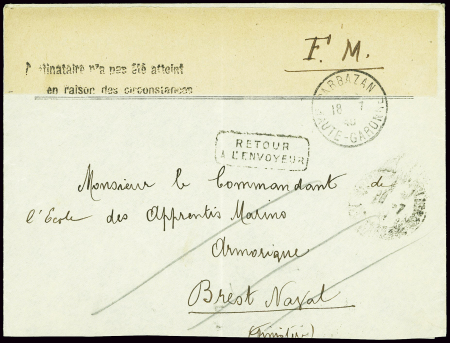 F. M.
n'a pas été atteint
en raison des circonstances
BARBAZAN
18 7
40
HAUTE-GARONNE
RETOUR
A L'ENVOYEUR
Monsieur le Commandant de
l'Ecole des Apprentis Marins
Armorique
Brest Naval
(Finistère)